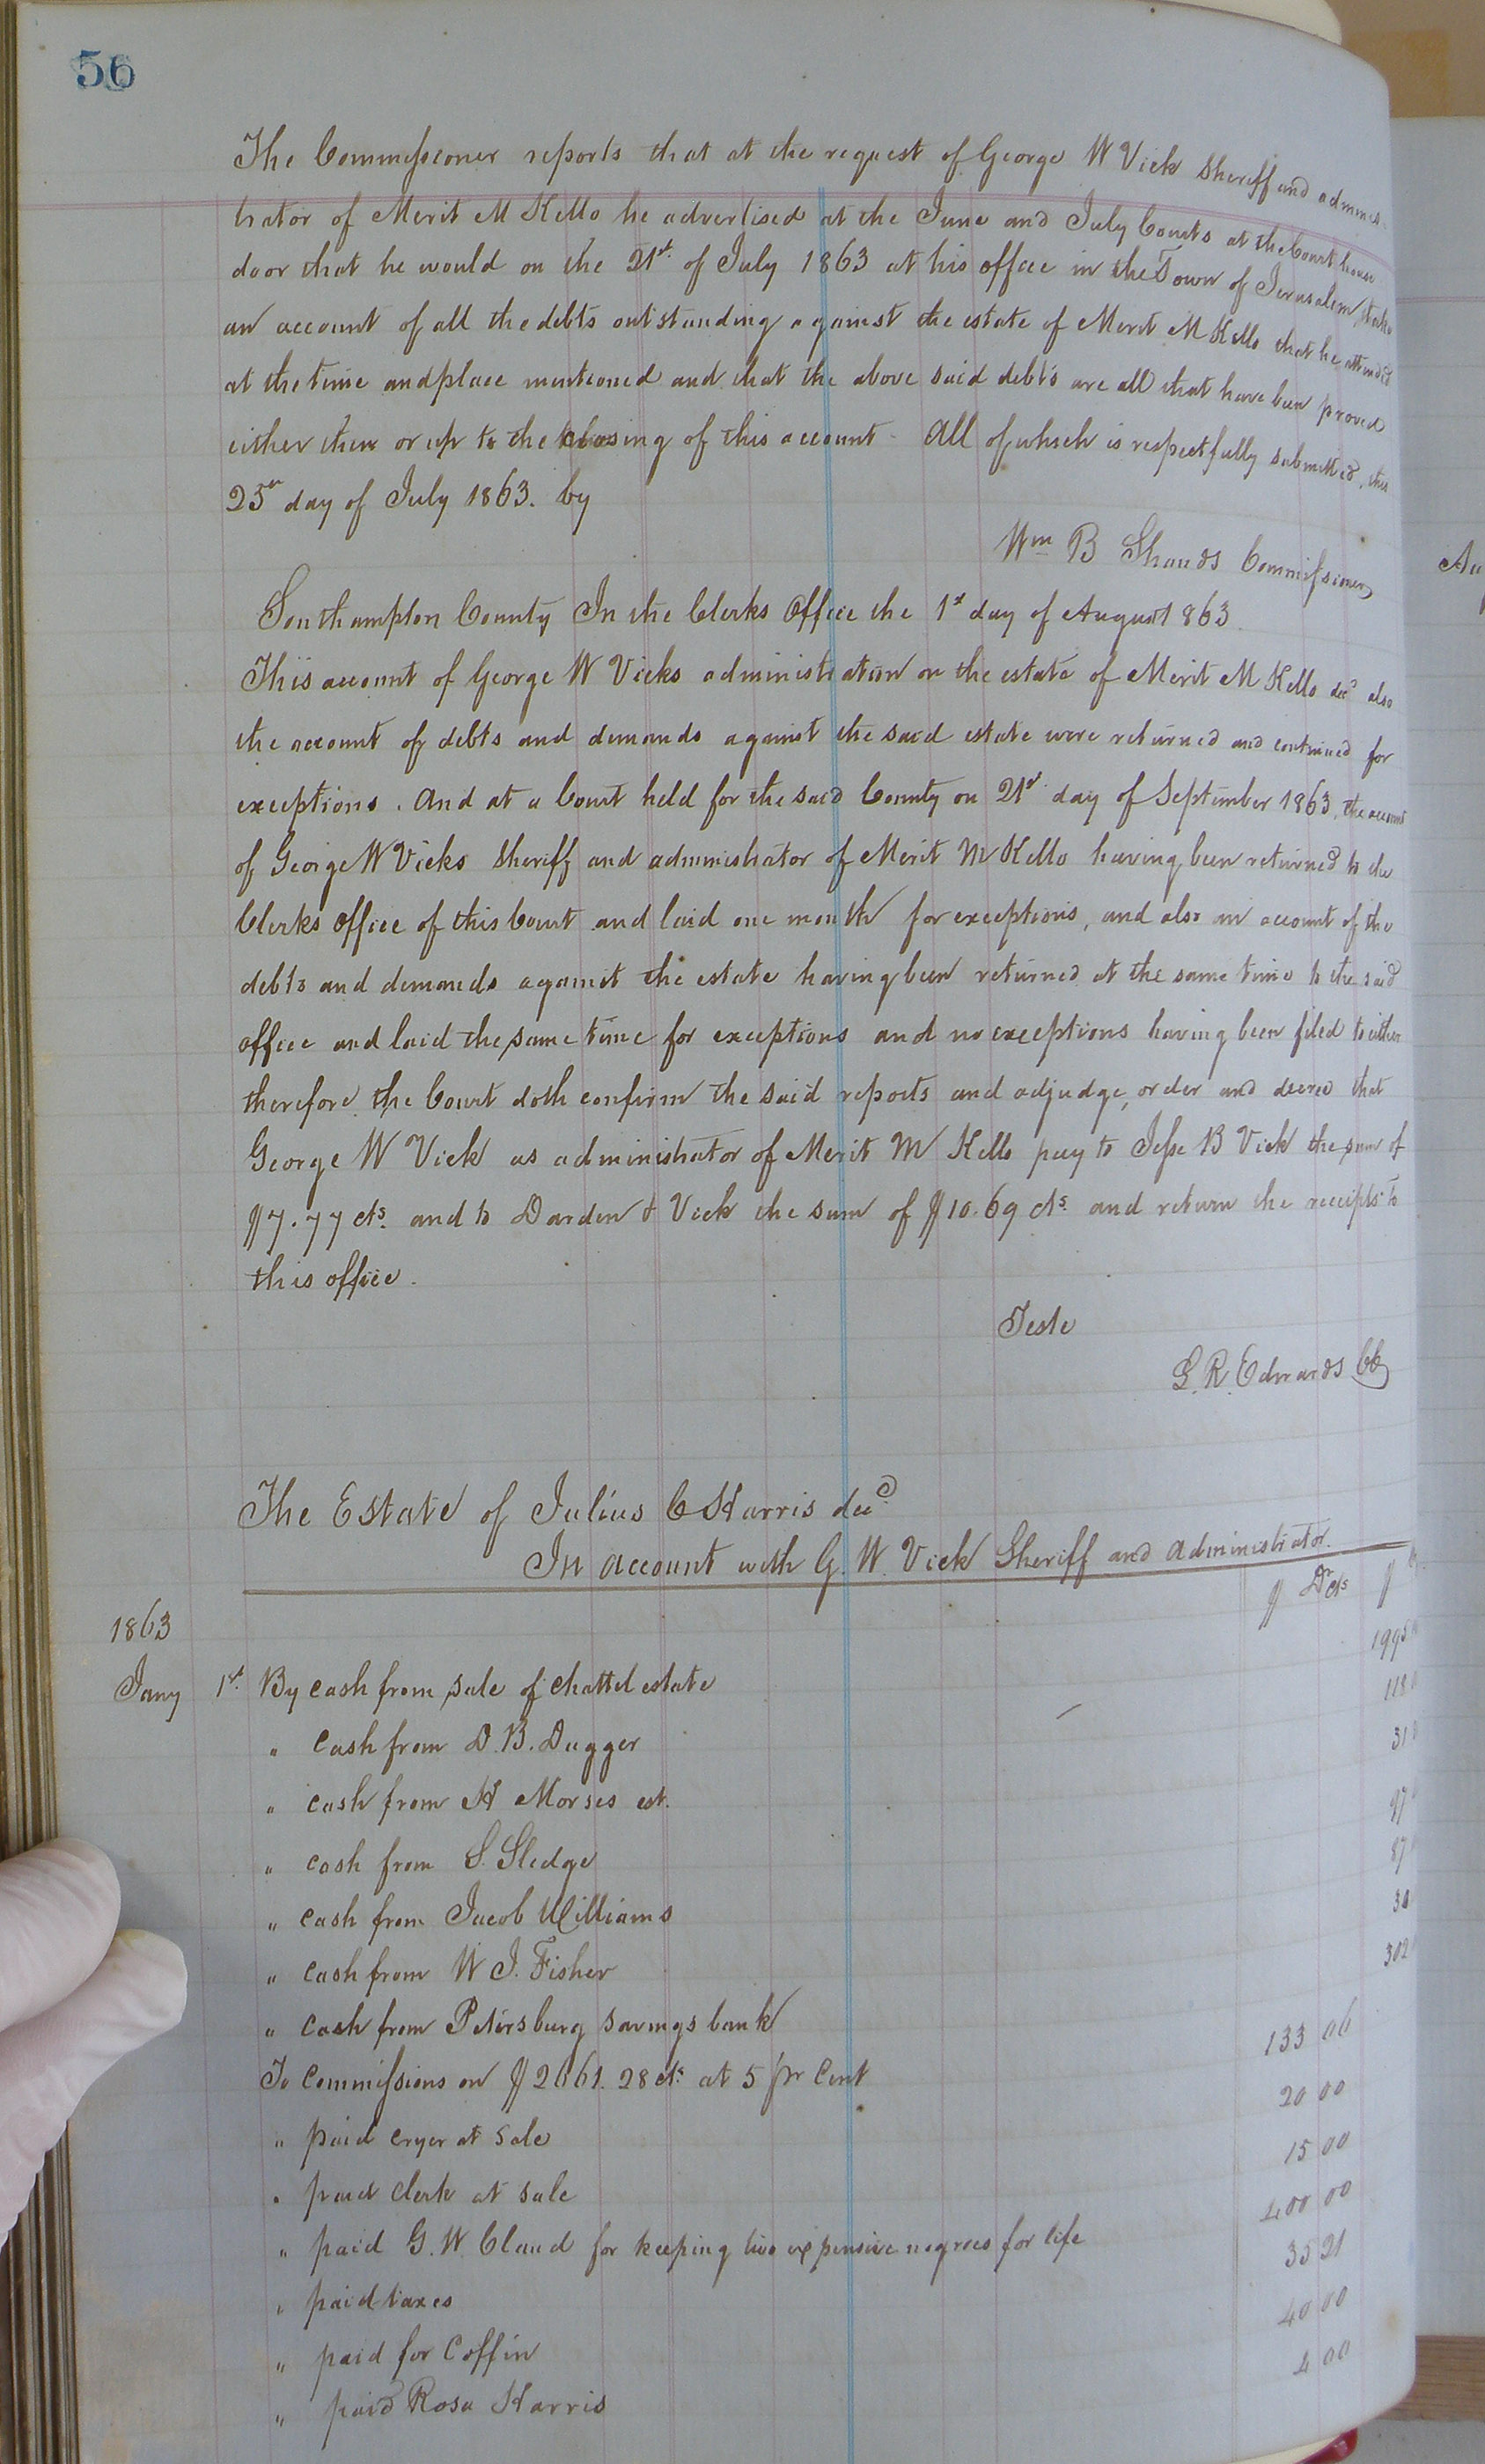 56
The Commissioner reports that at the request of George W Vick Sheriff and adminis-
trator of Merit M Kello he advertised at the June and July Courts at the Court house
door that he would on the 21st of July 1863 at his office in the Town of Jerusalem, take
an account of all the debts outstanding against the estate of Merit M Kello that he attended
at the time and place mentioned and that the above said debts are all that have been proved
either then or up to the closing of this account - All of which is respectfully submitted, this
day of July 1863. by
Wm B Shands Commissioner
Southampton County In the Clerks Office the 1st day of August 1863
This account of George W Vicks administration on the estate of Merit M Kello decd also
the account of debts and demands against the said estate were returned and continued for
exceptions. And at a Court held for the said County on 21st day of September 1863, the account
of George W Vicks Sheriff and administrator of Merit M Kello having been returned to the
Clerks office of this Court and laid one month for exceptions, and also an account of the
debts and demands against the estate having been returned at the same time to the said
office and laid the same time for exceptions and no exceptions having been filed to either
therefore the Court doth confirm the said reports and adjudge, order and decree that
George W Vick as administrator of Merit M Kello pay to Jesse B Vick the sum of
$7.77 cts. and to Darden & Vick the sum of $10.69 cts. and return the receipts to
this office.
Teste
L. R. Edwards CC
The Estate of Julius C Harris decd
In account with G. W. Vick Sheriff and Administrator.
$ Dr cts $
1863
Jany 1st. By cash from sale of chattel estate 1995
" cash from D. B. Dugger 118
" cash from H Morses est. 31
" cash from S. Sledge 97
" cash from Jacob Williams 87
" cash from W J. Fisher 30
" cash from Petersburg savings bank 302
To commissions on $2661.28 cts. at 5 pr Cent 133 06
" paid cryer at sale 20 00
" paid clerk at sale 15 00
" paid G. W. Claud for keeping two expensive negroes for life 400 00
" paid taxes 35 21
" paid for Coffin 40 00
" paid Rosa Harris 4 00